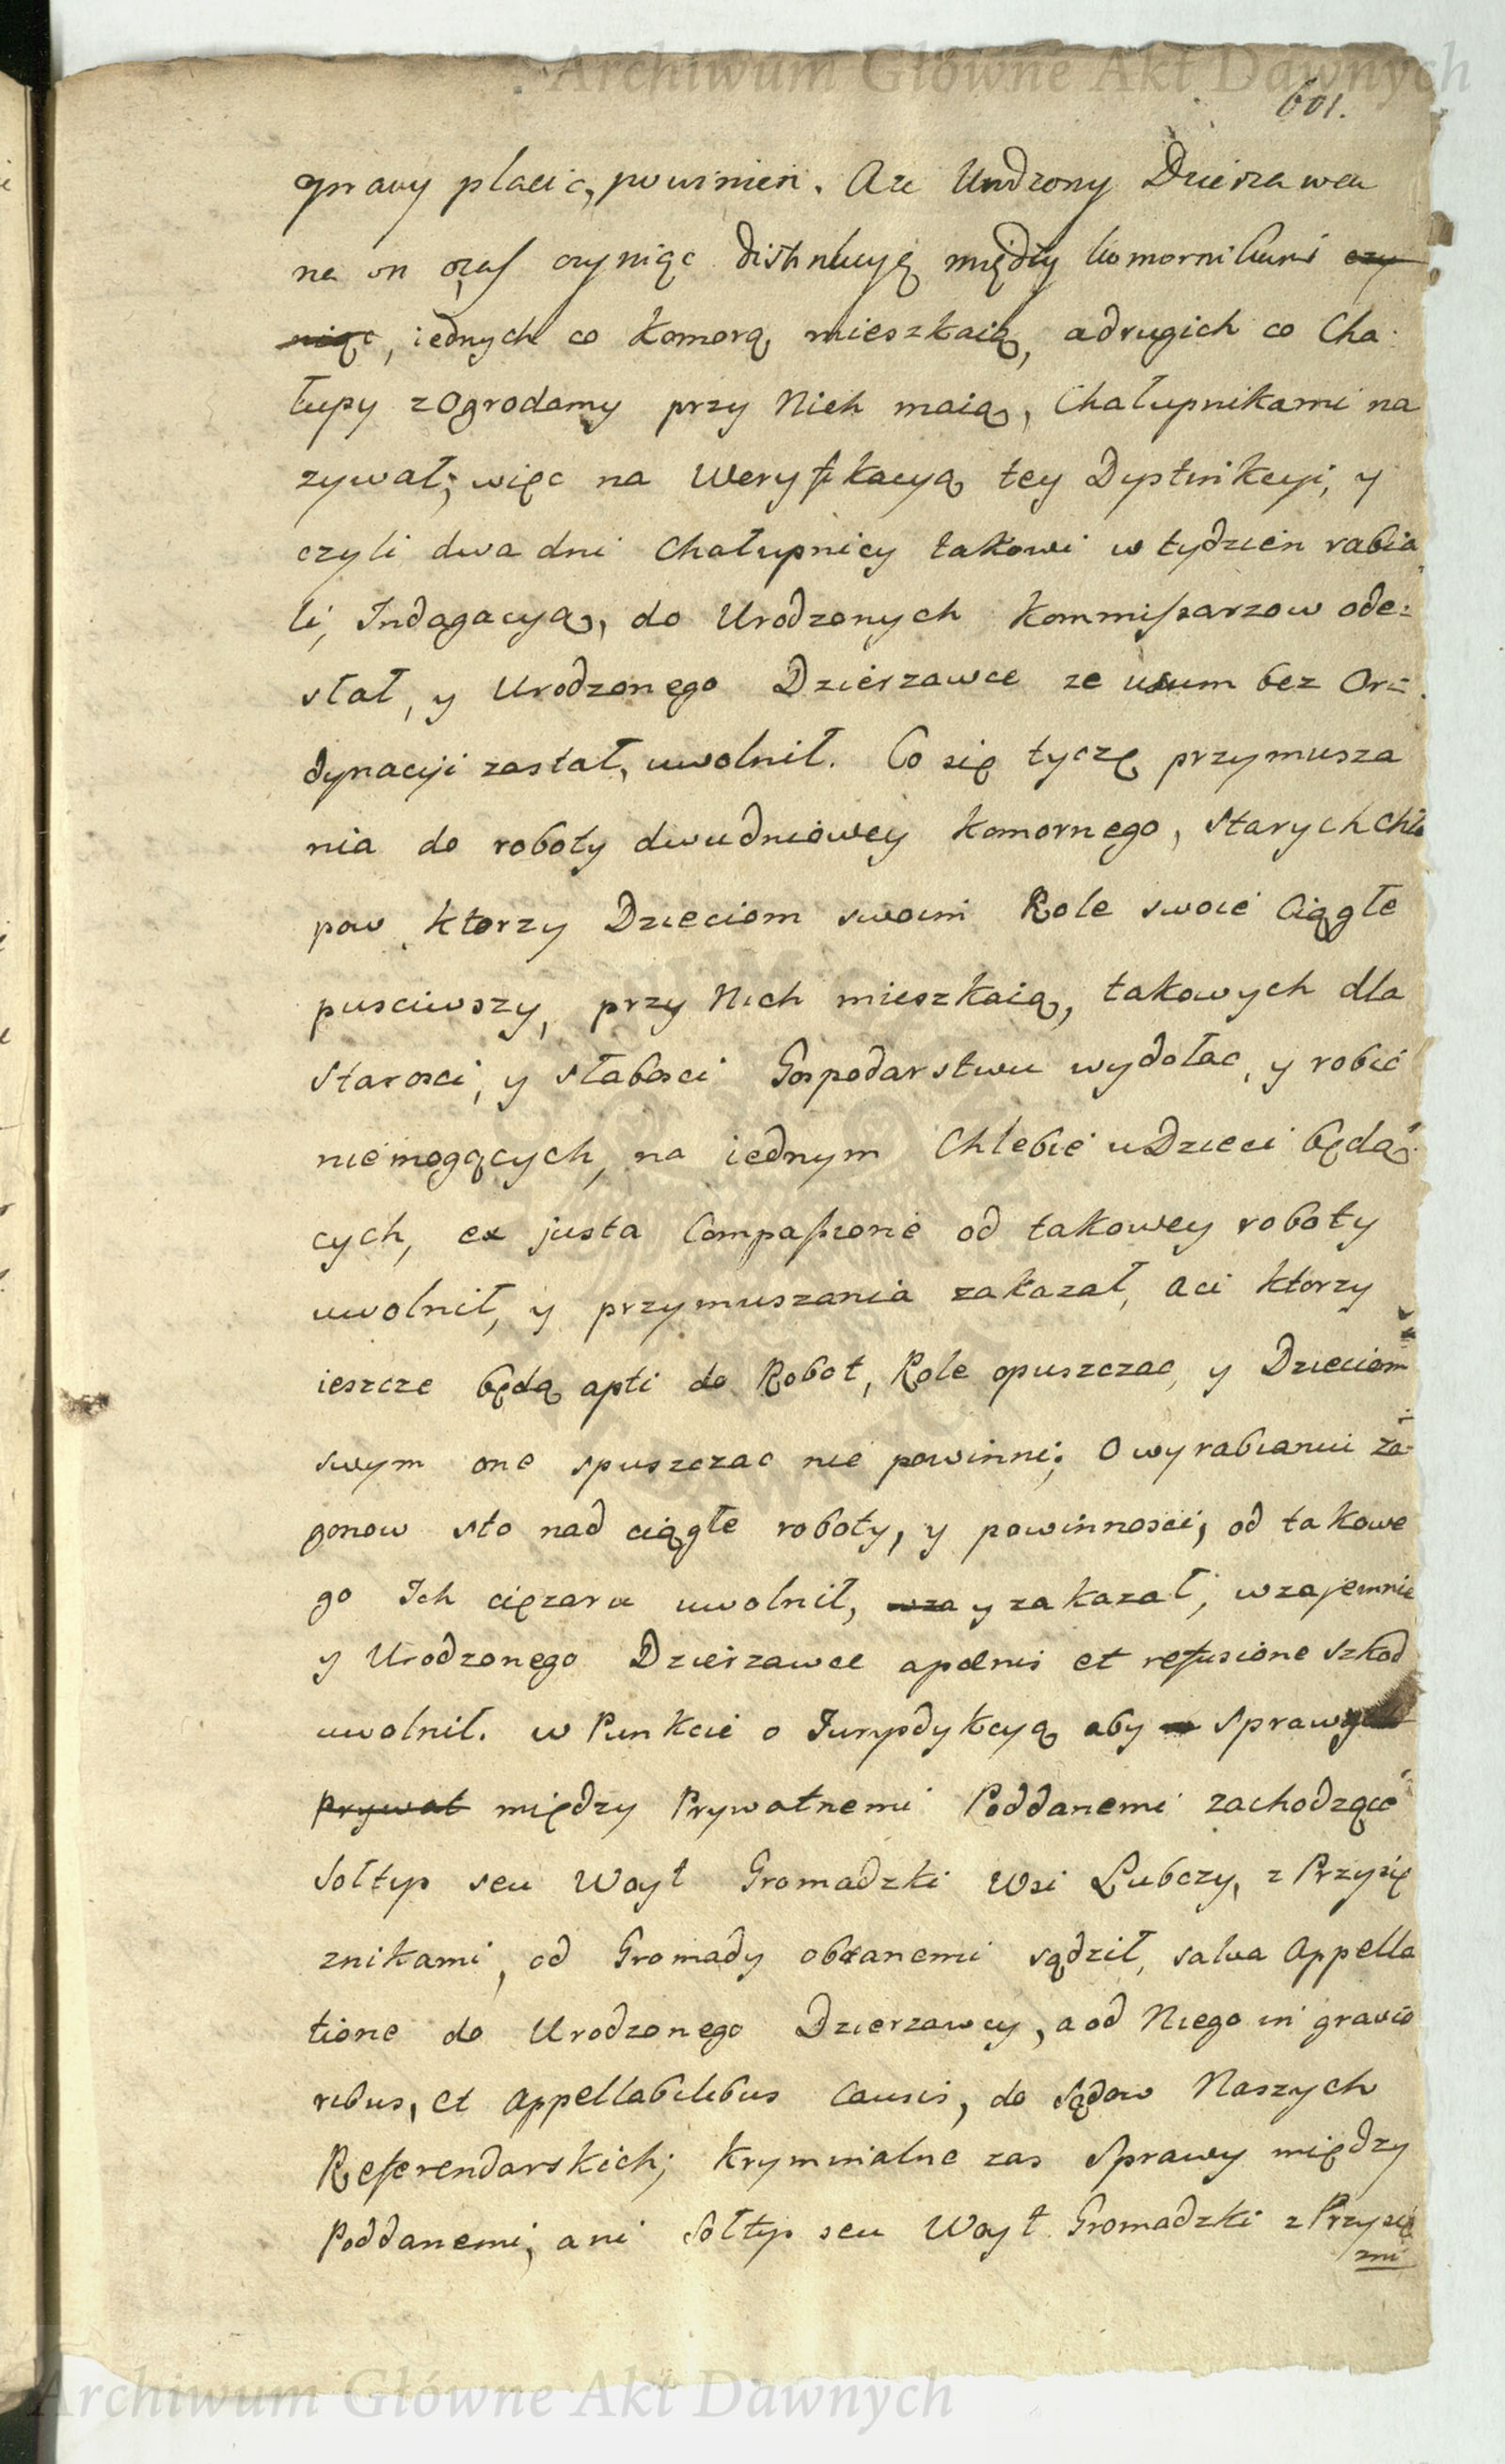 Archiwum Główne Akt Dawnych
601.
prawy płacić, powinien. A że Urodzony Dzierzawca
na on czas czyniąc distinkcyą między komornikami czy
niąc, iednych co Komorą mieszkaią, a drugich co Cha
łupy z Ogrodamy przy Nich maią, Chałupnikami na
zywał; więc na Weryfikacyą tey Dystinkcyi, y
czyli dwa dni Chałupnicy takowi w tydzien rabia
li, Indagacyą, do Urodzonych Kommissarzow ode=
słał, y Urodzonego Dzierzawce ze usum bez Or=
dynacyi zastał, uwolnił. Co się tyczę przymusza
nia do roboty dwudniowey Komornego, starych chło
pow ktorzy Dzieciom swoim Role swoie Ciągłe
pusciwszy, przy Nich mieszkaią, takowych dla
Starosci, y słabosci Gospodarstwu wydołac, y robić
niemogących, na iednym Chlebie u Dzieci będą
cych, ex justa Compassione od takowey roboty
uwolnił, y przymuszania zakazał, a ci ktorzy
ieszcze będą apti do Robot, Role opuszczac, y Dzieciom
swym one spuszczac nie powinni; O wyrabianiu za=
gonow sto nad ciągłe roboty, y powinnosci, od takowe
go Ich ciężaru uwolnił, wza y zakazał, wzajemnie
y Urodzonego Dzierzawce a poenis et refusione szkod
uwolnił. w Punkcie o Jurysdykcyą aby sprawy
prywat między Prywatnemi Poddanemi zachodzące
Sołtys seu Woyt Gromadzki Wsi Lubczy, z Przysię
znikami, od Gromady obranemi sądził, salva Appella
tione do Urodzonego Dzierzawcy, a od Niego in gravio
ribus, et appellabilibus Causis, do Sądow Naszych
Referendarskich; Kryminalne zas Sprawy między
Poddanemi, ani Sołtys seu Woyt Gromadzki z Przysię
zni
Archiwum Główne Akt Dawnych